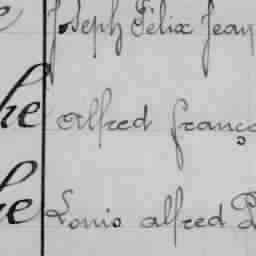 Joseph Félix Jean
he Alfred franç
he Louis alfred